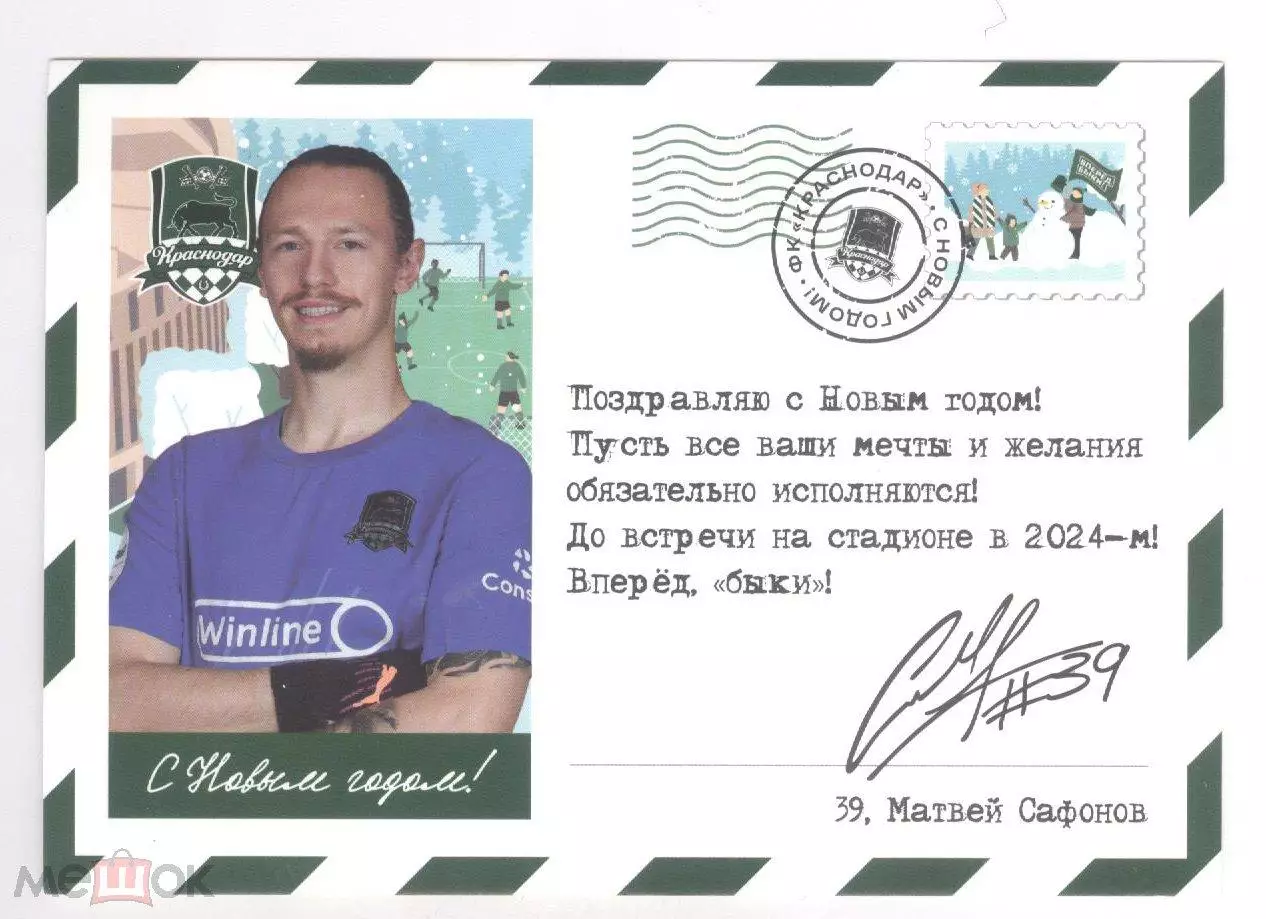 Краснодар
ФК «КРАСНОДАР» • С НОВЫМ ГОДОМ! •
Краснодар
ВПЕРЁД
БЫКИ!
Поздравляю с Новым годом!
Пусть все ваши мечты и желания
обязательно исполняются!
До встречи на стадионе в 2024-м!
Вперёд, «быки»!
Cons
Winline
#39
С Новым годом!
39, Матвей Сафонов
мешок